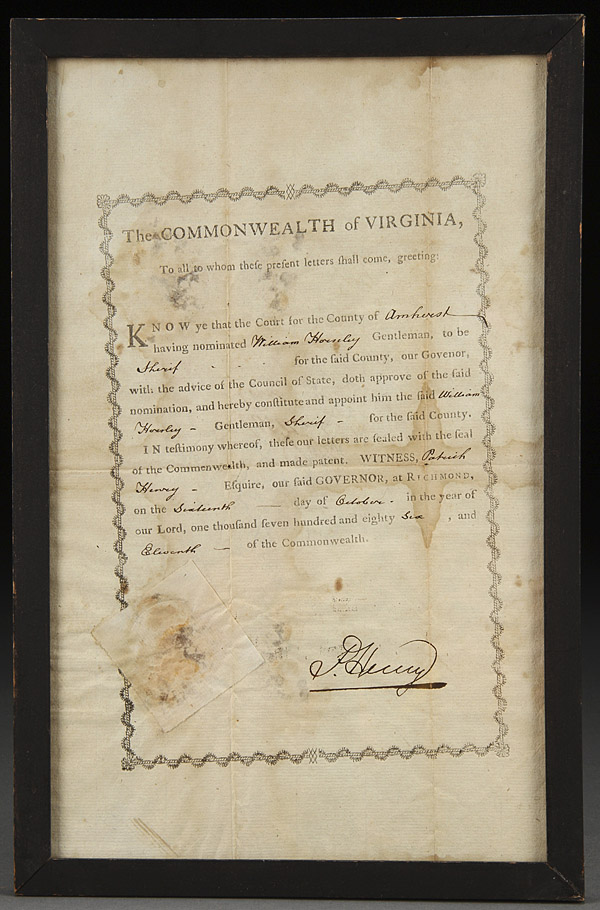 The COMMONWEALTH of VIRGINIA,
To all to whom theſe preſent letters ſhall come, greeting:
KNOW ye that the Court for the County of Amherst
having nominated William Horsley Gentleman, to be
Sherif - - - for the ſaid County, our Govenor,
with the advice of the Council of State, doth approve of the ſaid
nomination, and hereby conſtitute and appoint him the ſaid William
Horsley - Gentleman, Sherif - for the ſaid County.
IN teſtimony whereof, theſe our letters are ſealed with the ſeal
of the Commonwealth, and made patent. WITNESS, Patrick
Henry - Eſquire, our ſaid GOVERNOR, at RICHMOND,
on the Sixteenth — day of October - in the year of
our Lord, one thouſand ſeven hundred and eighty Six , and
Eleventh — of the Commonwealth.
P. Henry